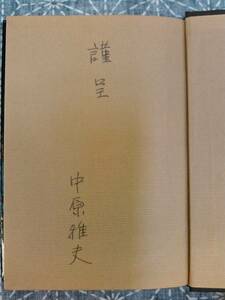 謹呈
中原雅夫